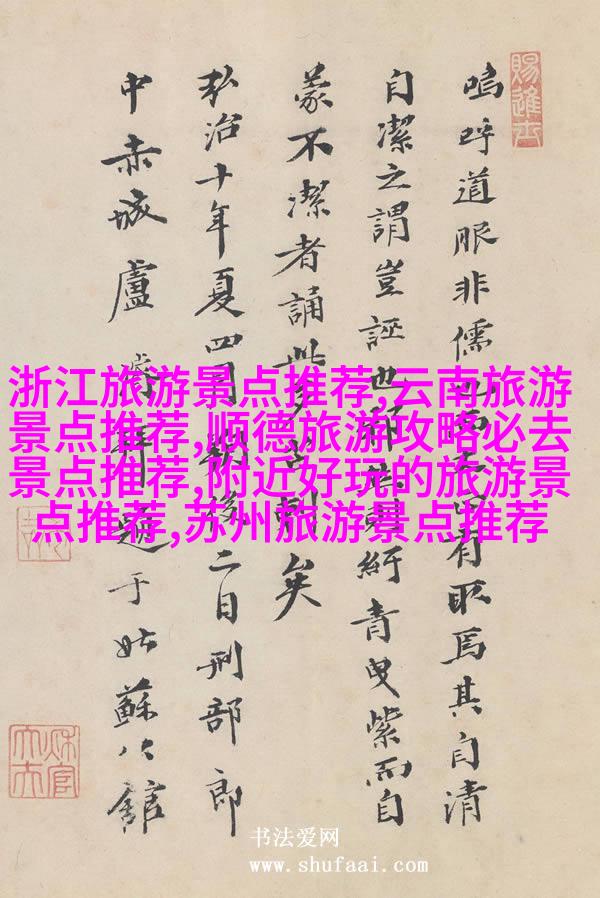 賜進士
嗚呼道眼非儒有取焉其自清
自潔之謂豈誣也耶紆青曳紫而自
蒙不潔者誦此矣
弘治十年夏四月後二日刑部郎
中赤城盧拜題于姑蘇公館
浙江旅游景点推荐,云南旅游
景点推荐,顺德旅游攻略必去
景点推荐,附近好玩的旅游景
点推荐,苏州旅游景点推荐
书法爱网
www.shufaai.com